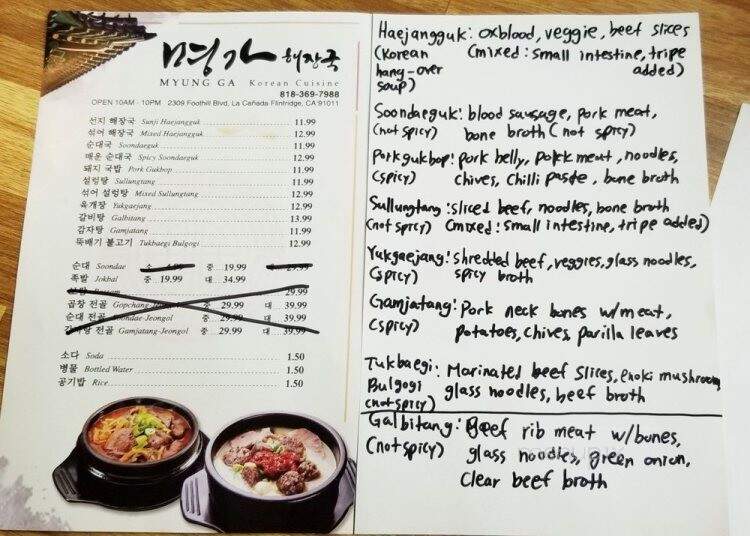 명가 해장국
MYUNG GA Korean Cuisine
818-369-7988
OPEN 10AM - 10PM 2309 Foothill Blvd, La Cañada Flintridge, CA 91011
선지 해장국 Sunji Haejangguk 11.99
섞어 해장국 Mixed Haejangguk 12.99
순대국 Soondaeguk 11.99
매운 순대국 Spicy Soondaeguk 12.99
돼지 국밥 Pork Gukbop 11.99
설렁탕 Sullungtang 11.99
섞어 설렁탕 Mixed Sullungtang 12.99
육개장 Yukgaejang 11.99
갈비탕 Galbitang 13.99
감자탕 Gamjatang 11.99
뚝배기 불고기 Tukbaegi Bulgogi 12.99
순대 Soondae 중 19.99 29.99
족발 Jokbal 중 19.99 대 34.99
29.99
곱창 전골 Gopchang-Jeongol 중 29.99 대 39.99
순대 전골 Soondae-Jeongol 중 29.99 대 39.99
감자탕 전골 Gamjatang-Jeongol 중 29.99 대 39.99
소다 Soda 1.50
병물 Bottled Water 1.50
공기밥 Rice 1.50
Haejangguk: oxblood, veggie, beef slices
(Korean (mixed: small intestine, tripe
hang-over added)
soup)
Soondaeguk: blood sausage, pork meat,
(not spicy) bone broth (not spicy)
Porkgukbop: pork belly, pokk meat, noodles,
(spicy) chives, chilli paste, bone broth
Sullungtang: sliced beef, noodles, bone broth
(not spicy) (mixed: small intestine, tripe added)
Yukgaejang: shredded beef, veggies, glass noodles,
(spicy) spicy broth
Gamjatang: Pork neck bones w/meat,
(spicy) potatoes, chives, parilla leaves
Tukbaegi: Marinated beef slices, enoki mushroom,
Bulgogi glass noodles, beef broth
(not spicy)
Galbitang: Beef rib meat w/bones,
(not spicy) glass noodles, green onion,
clear beef broth